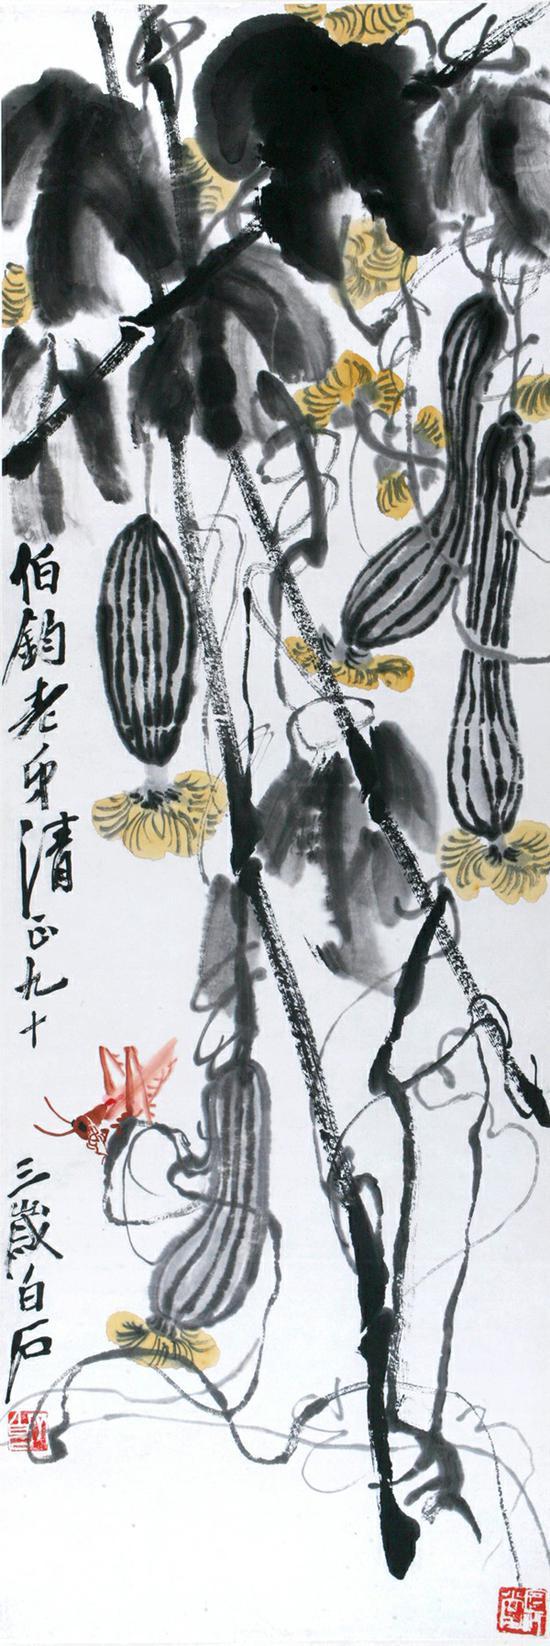 伯鈞老弟清正九十
三歲白石